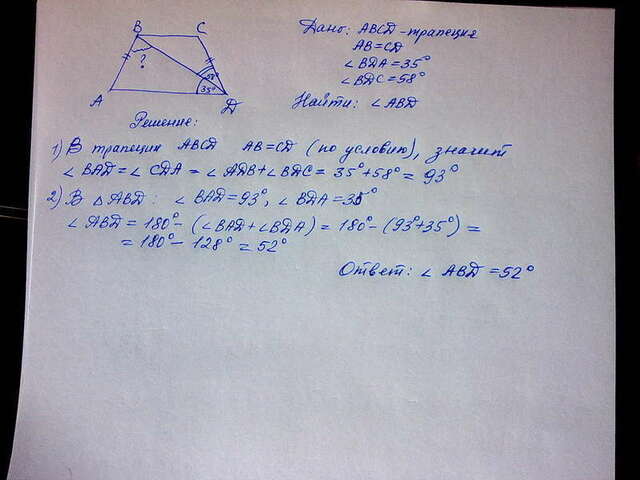 B C
?
58°
35°
A D
Дано: ABCD - трапеция
AB=CD
∠BDA=35°
∠BDC=58°
Найти: ∠ABD
Решение:
1) В трапеции ABCD AB=CD (по условию), значит
∠BAD=∠CDA=∠ADB+∠BDC=35°+58°=93°
2) В △ABD: ∠BAD=93°, ∠BDA=35°
∠ABD=180°-(∠BAD+∠BDA)=180°-(93°+35°)=
=180°-128°=52°
Ответ: ∠ABD=52°